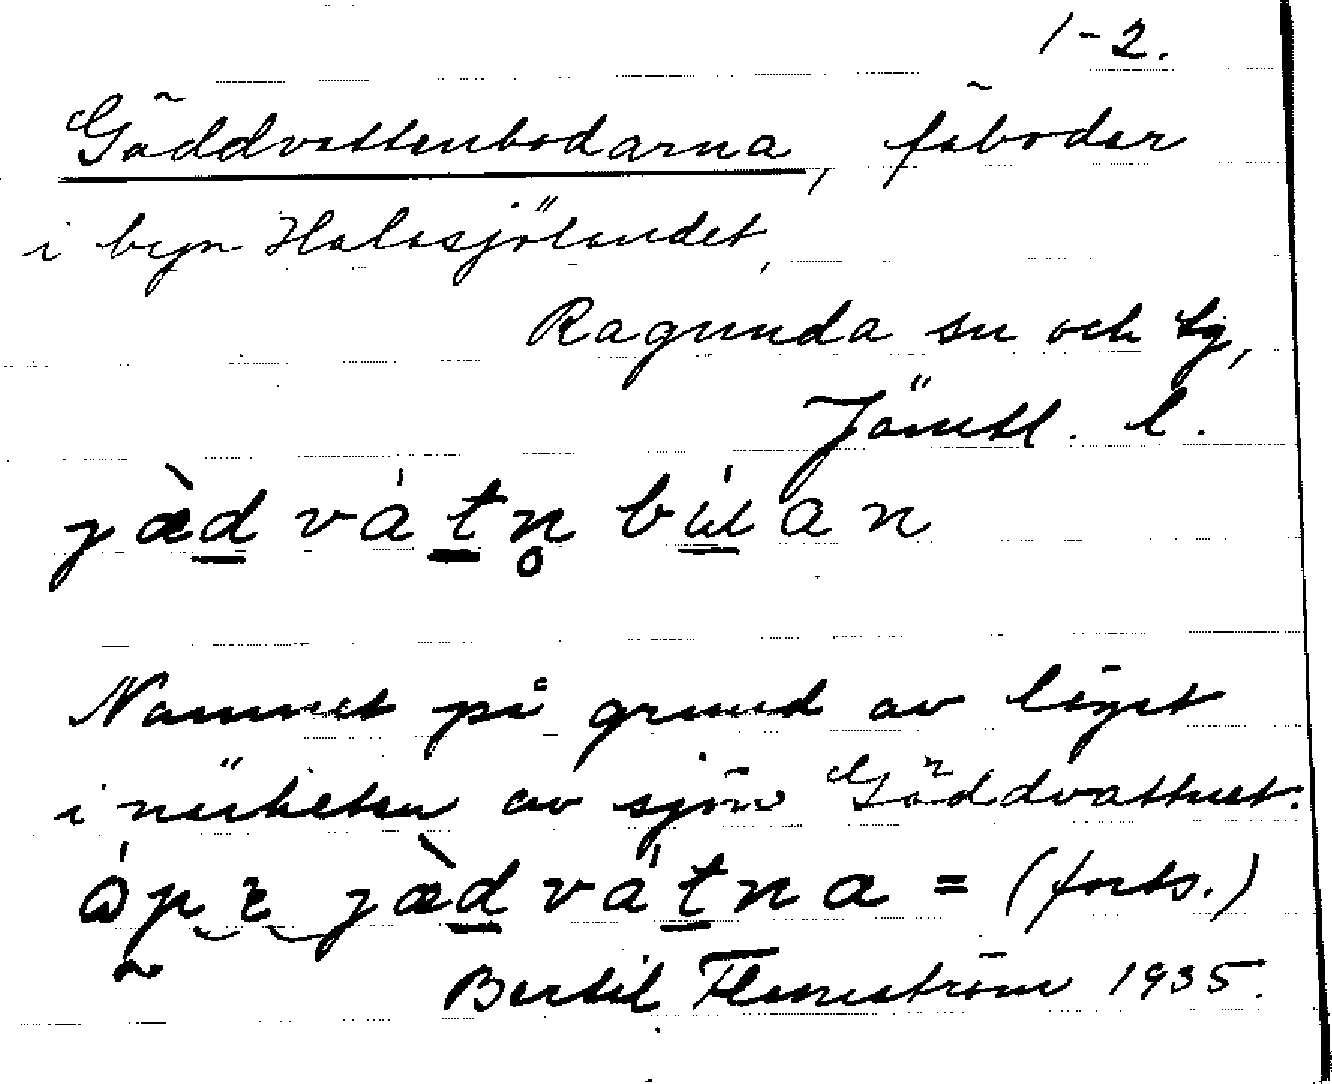 1-2.
Gäddvattenbodarna, fäbodar
i byn Halasjölandet,
Ragunda sn och tg,
Jämtl. l.
jæ̀d vátn̥ búan
Namnet på grund av läget
i närheten av sjön Gäddvattnet.
jæ̀d vátna = (forts.)
Bertil Flemström 1935.